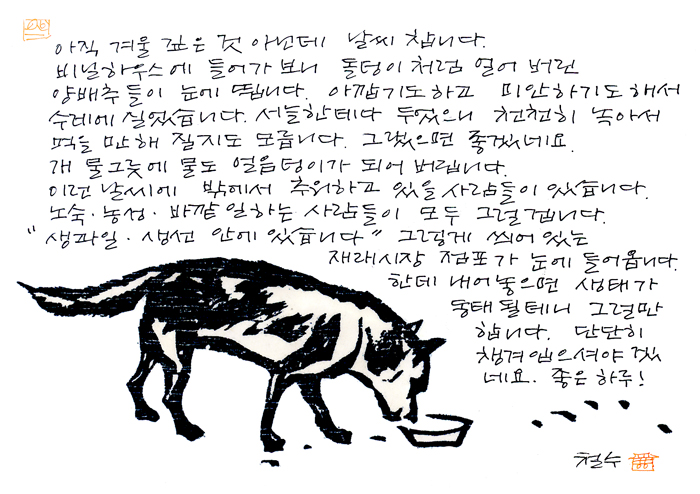 아직 겨울 깊은 것 아닌데 날씨 찹니다.
비닐하우스에 들어가 보니 돌덩이처럼 얼어 버린
양배추들이 눈에 띕니다. 아깝기도하고 미안하기도 해서
수레에 실었습니다. 서늘한데다 두었으니 천천히 녹아서
먹을 만 해 질지도 모릅니다. 그랬으면 좋겠네요.
개 물그릇에 물도 얼음덩이가 되어 버립니다.
이런 날씨에 밖에서 추워하고 있을 사람들이 있습니다.
노숙·농성·바깥 일하는 사람들이 모두 그럴겁니다.
"생과일·생선 안에 있습니다" 그렇게 씌어 있는
재래시장 점포가 눈에 들어옵니다.
한데 내어 놓으면 생태가
동태 될테니 그럴만
합니다. 단단히
챙겨 입으셔야 겠
네요. 좋은 하루!
철수